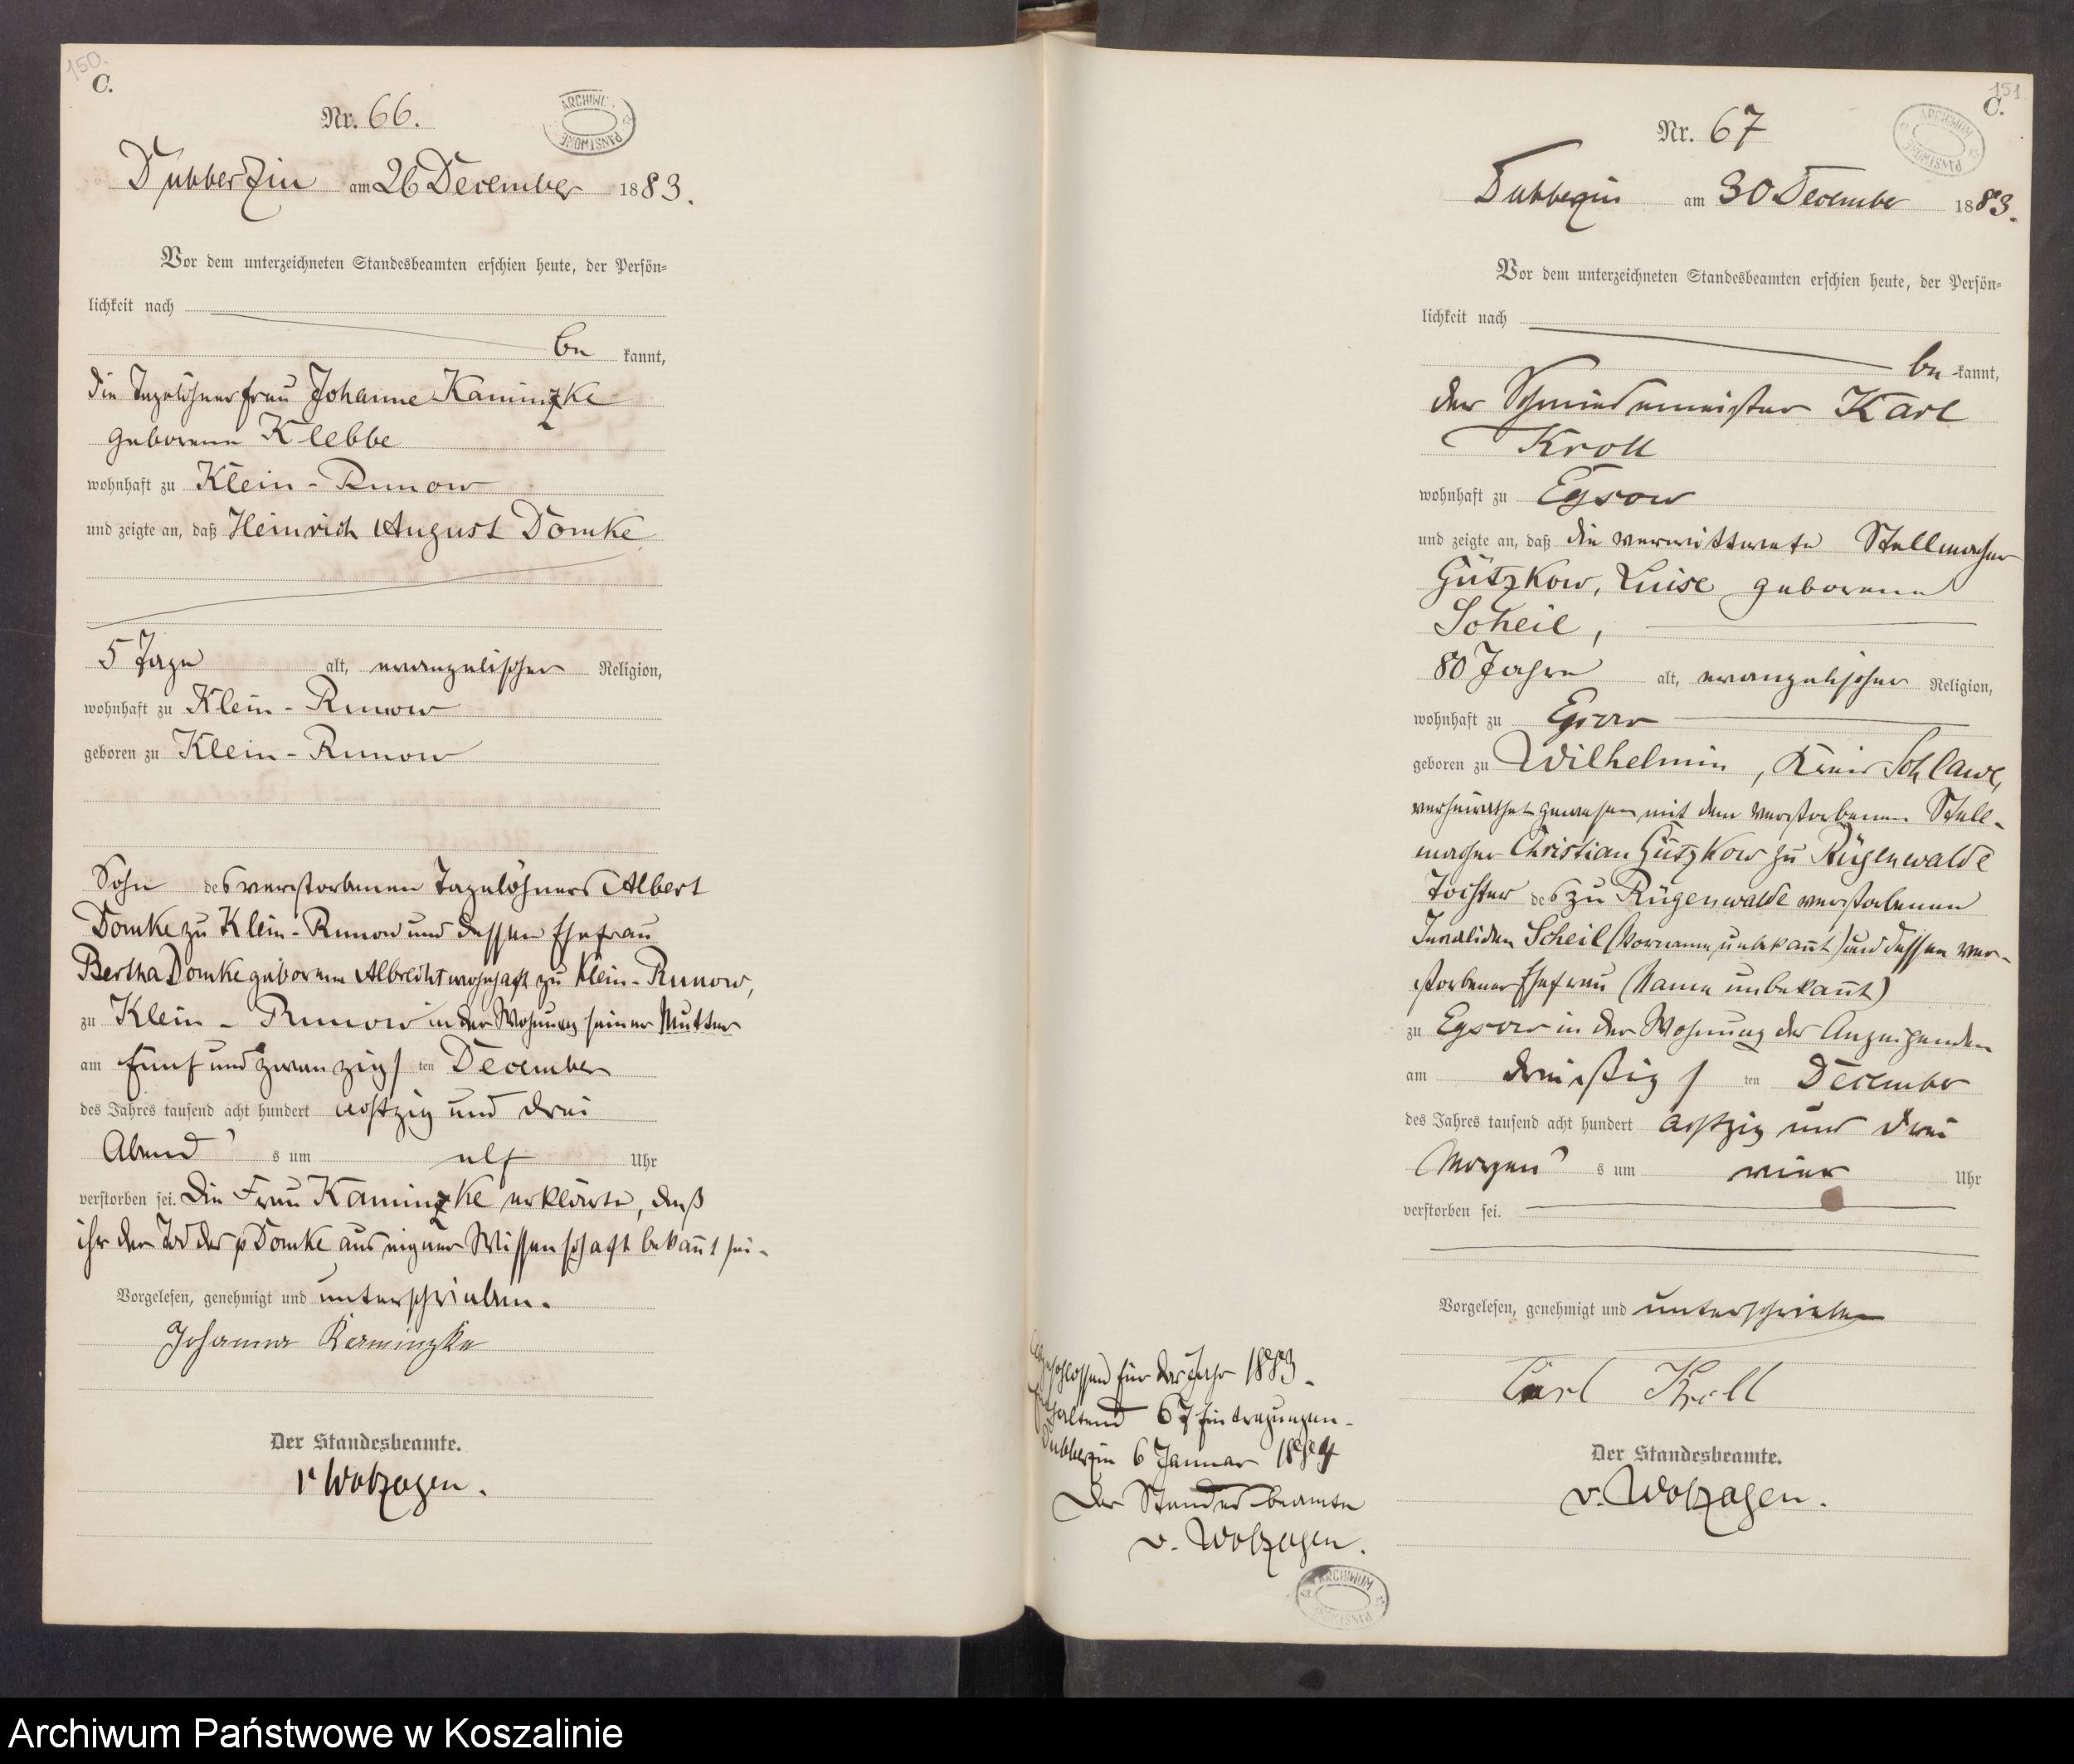 150.
C.
Nr. 66.
ARCHIWUM PAŃSTWOWE
Dubberzin am 26 December 1883.
Vor dem unterzeichneten Standesbeamten erschien heute, der Persön-
lichkeit nach
be kannt,
die Tagelöhnerfrau Johanne Kaminzke
geborene Klebbe
wohnhaft zu Klein-Runow
und zeigte an, daß Heinrich August Domke
5 Tage alt, evangelischer Religion,
wohnhaft zu Klein-Runow
geboren zu Klein-Runow
Sohn des verstorbenen Tagelöhners Albert
Domke zu Klein-Runow und dessen Ehefrau
Bertha Domke geborene Albrecht wohnhaft zu Klein-Runow,
zu Klein-Runow in der Wohnung seiner Mutter
am fünf und zwanzigs ten December
des Jahres tausend acht hundert achtzig und drei
Abend s um elf Uhr
verstorben sei. Die Frau Kaminzke erklärte, daß
ihr der Tod des p Domke aus eigner Wissenschaft bekannt sei.
Vorgelesen, genehmigt und unterschrieben.
Johanna Kaminzke
Der Standesbeamte.
v Wolzogen.
151
C.
Nr. 67
ARCHIWUM PAŃSTWOWE
Dubberzin am 30 December 1883.
Vor dem unterzeichneten Standesbeamten erschien heute, der Persön-
lichkeit nach
be kannt,
der Schmiedemeister Karl
Kroll
wohnhaft zu Egsow
und zeigte an, daß die verwittwete Stellmacher
Gützkow, Luise geborene
Scheil,
80 Jahre alt, evangelischer Religion,
wohnhaft zu Egsow
geboren zu Wilhelmin, Kreis Schlawe,
verheirathet gewesen mit dem verstorbenen Stell-
macher Christian Gützkow zu Rügenwalde
Tochter des zu Rügenwalde verstorbenen
Invaliden Scheil (Vorname unbekannt) und dessen ver-
storbener Ehefrau (Name unbekannt)
zu Egsow in der Wohnung des Anzeigenden
am dreißigs ten December
des Jahres tausend acht hundert achtzig und drei
Morgen s um vier Uhr
verstorben sei.
Vorgelesen, genehmigt und unterschrieben
Carl Kroll
Der Standesbeamte.
v. Wolzogen.
Abgeschlossen für das Jahr 1883.
Enthaltend 67 Eintragungen.
Dubberzin 6 Januar 1884
Der Standesbeamte
v. Wolzogen.
ARCHIWUM PAŃSTWOWE
Archiwum Państwowe w Koszalinie